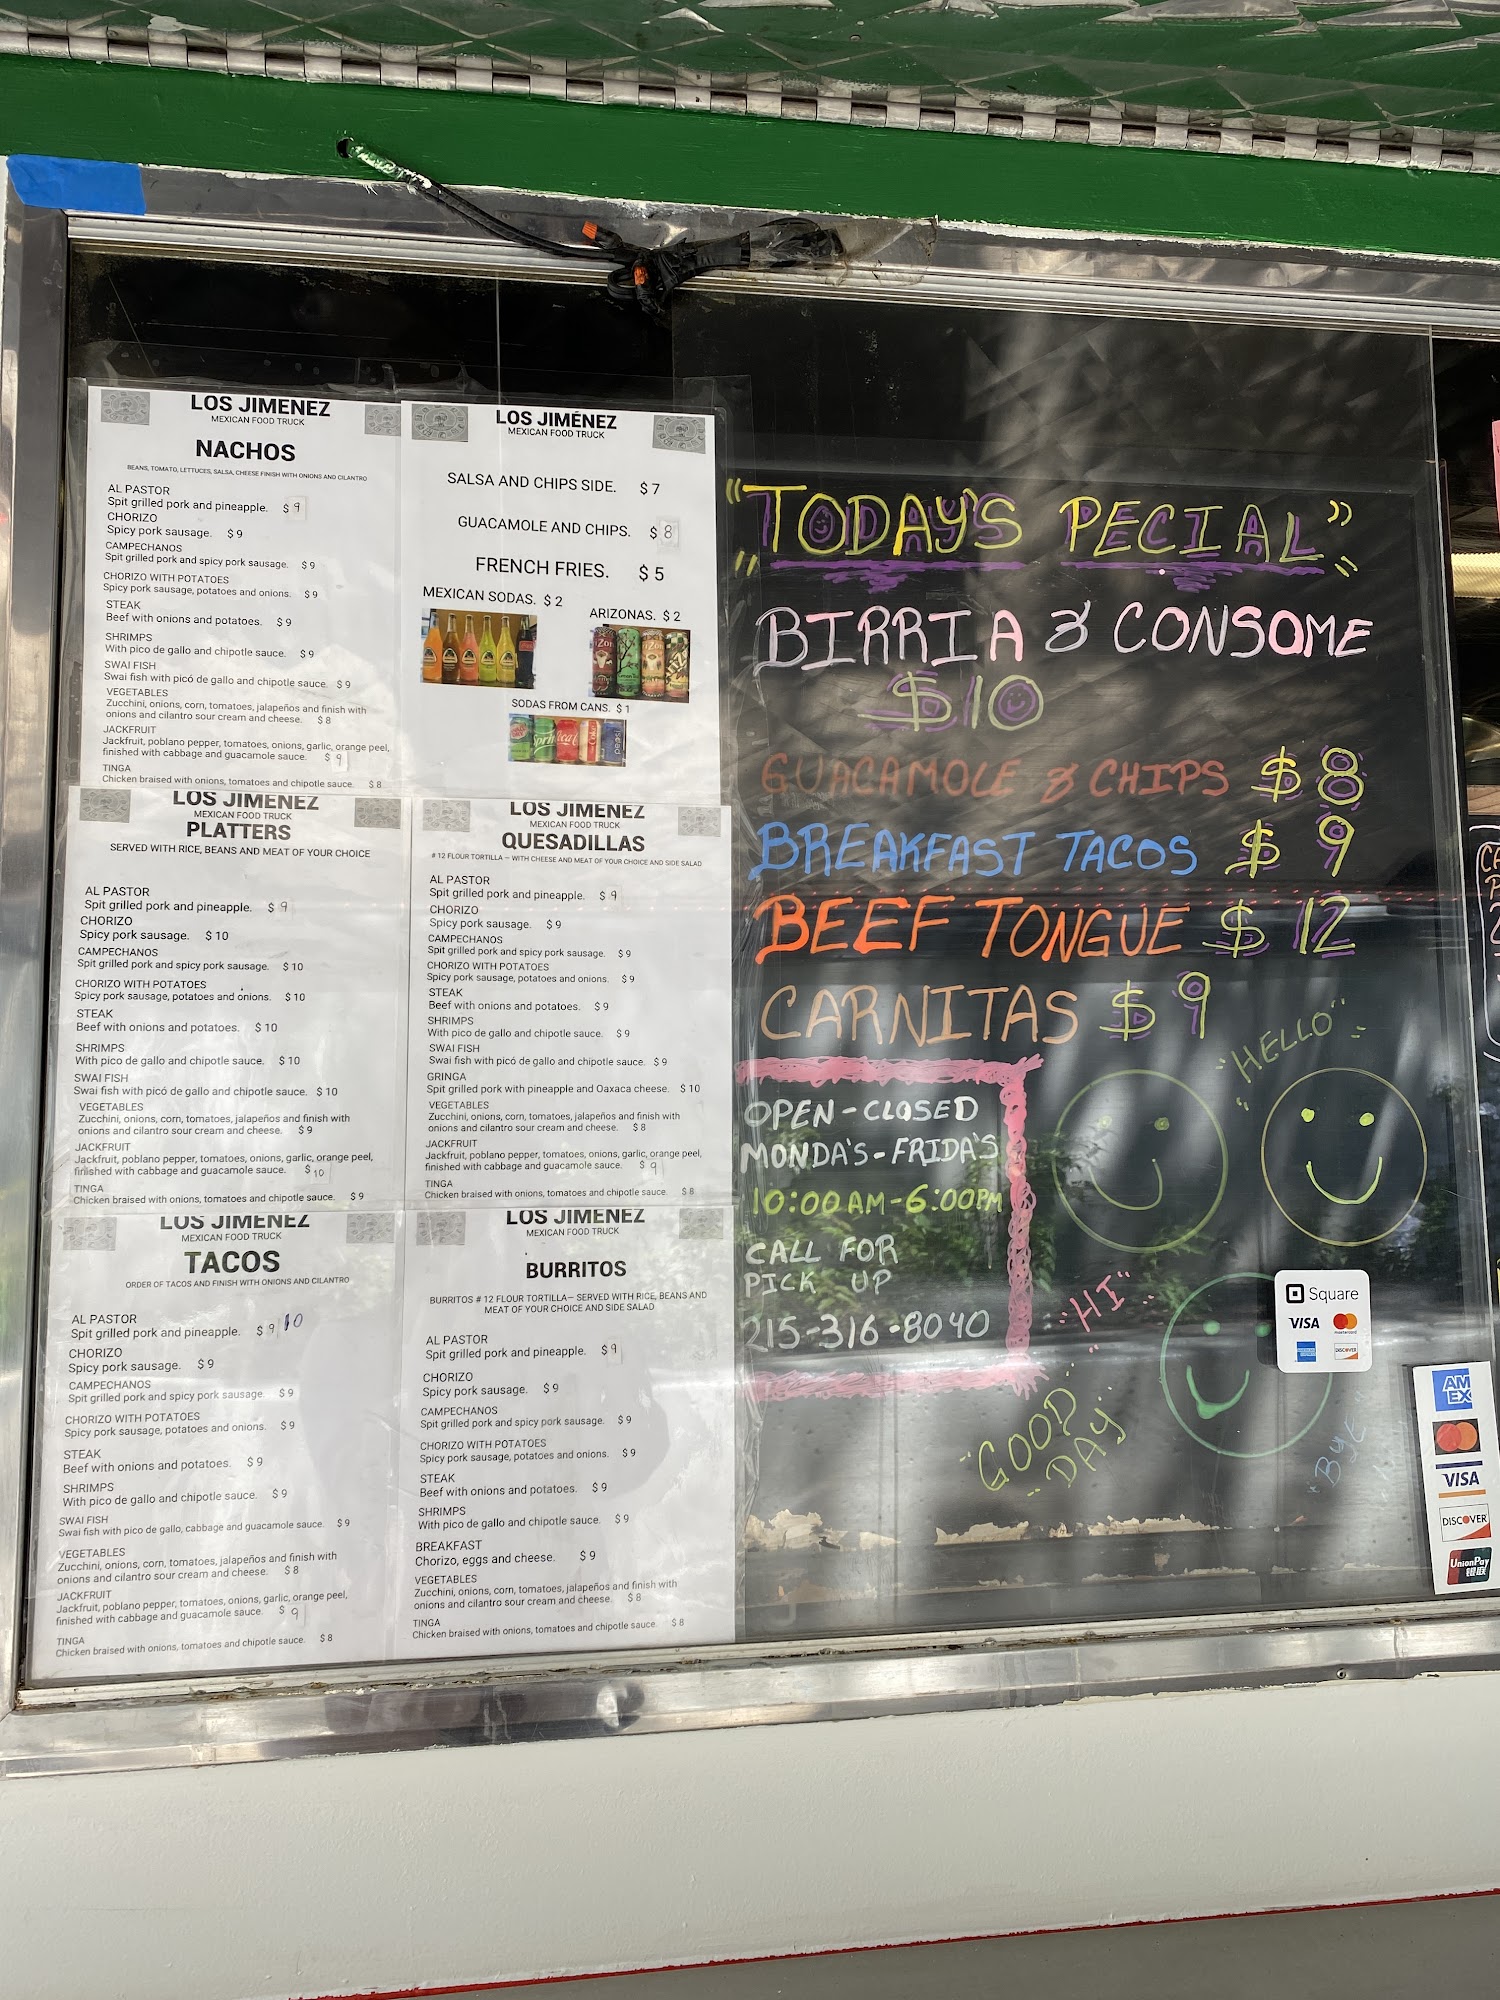 LOS JIMENEZ
MEXICAN FOOD TRUCK
NACHOS
BEANS, TOMATO, LETTUCES, SALSA, CHEESE FINISH WITH ONIONS AND CILANTRO
AL PASTOR
Spit grilled pork and pineapple. $ 9
CHORIZO
Spicy pork sausage. $ 9
CAMPECHANOS
Spit grilled pork and spicy pork sausage. $ 9
CHORIZO WITH POTATOES
Spicy pork sausage, potatoes and onions. $ 9
STEAK
Beef with onions and potatoes. $ 9
SHRIMPS
With pico de gallo and chipotle sauce. $ 9
SWAI FISH
Swai fish with picó de gallo and chipotle sauce. $ 9
VEGETABLES
Zucchini, onions, corn, tomatoes, jalapeños and finish with
onions and cilantro sour cream and cheese. $ 8
JACKFRUIT
Jackfruit, poblano pepper, tomatoes, onions, garlic, orange peel,
finished with cabbage and guacamole sauce. $ 9
TINGA
Chicken braised with onions, tomatoes and chipotle sauce. $ 8
LOS JIMÉNEZ
MEXICAN FOOD TRUCK
SALSA AND CHIPS SIDE. $ 7
GUACAMOLE AND CHIPS. $ 8
FRENCH FRIES. $ 5
MEXICAN SODAS. $ 2
ARIZONAS. $ 2
SODAS FROM CANS. $ 1
LOS JIMENEZ
MEXICAN FOOD TRUCK
PLATTERS
SERVED WITH RICE, BEANS AND MEAT OF YOUR CHOICE
AL PASTOR
Spit grilled pork and pineapple. $ 9
CHORIZO
Spicy pork sausage. $ 10
CAMPECHANOS
Spit grilled pork and spicy pork sausage. $ 10
CHORIZO WITH POTATOES
Spicy pork sausage, potatoes and onions. $ 10
STEAK
Beef with onions and potatoes. $ 10
SHRIMPS
With pico de gallo and chipotle sauce. $ 10
SWAI FISH
Swai fish with picó de gallo and chipotle sauce. $ 10
VEGETABLES
Zucchini, onions, corn, tomatoes, jalapeños and finish with
onions and cilantro sour cream and cheese. $ 9
JACKFRUIT
Jackfruit, poblano pepper, tomatoes, onions, garlic, orange peel,
finished with cabbage and guacamole sauce. $ 10
TINGA
Chicken braised with onions, tomatoes and chipotle sauce. $ 9
LOS JIMENEZ
MEXICAN FOOD TRUCK
QUESADILLAS
# 12 FLOUR TORTILLA – WITH CHEESE AND MEAT OF YOUR CHOICE AND SIDE SALAD
AL PASTOR
Spit grilled pork and pineapple. $ 9
CHORIZO
Spicy pork sausage. $ 9
CAMPECHANOS
Spit grilled pork and spicy pork sausage. $ 9
CHORIZO WITH POTATOES
Spicy pork sausage, potatoes and onions. $ 9
STEAK
Beef with onions and potatoes. $ 9
SHRIMPS
With pico de gallo and chipotle sauce. $ 9
SWAI FISH
Swai fish with picó de gallo and chipotle sauce. $ 9
GRINGA
Spit grilled pork with pineapple and Oaxaca cheese. $ 10
VEGETABLES
Zucchini, onions, corn, tomatoes, jalapeños and finish with
onions and cilantro sour cream and cheese. $ 8
JACKFRUIT
Jackfruit, poblano pepper, tomatoes, onions, garlic, orange peel,
finished with cabbage and guacamole sauce. $ 9
TINGA
Chicken braised with onions, tomatoes and chipotle sauce. $ 8
LOS JIMENEZ
MEXICAN FOOD TRUCK
TACOS
ORDER OF TACOS AND FINISH WITH ONIONS AND CILANTRO
AL PASTOR
Spit grilled pork and pineapple. $ 9 10
CHORIZO
Spicy pork sausage. $ 9
CAMPECHANOS
Spit grilled pork and spicy pork sausage. $ 9
CHORIZO WITH POTATOES
Spicy pork sausage, potatoes and onions. $ 9
STEAK
Beef with onions and potatoes. $ 9
SHRIMPS
With pico de gallo and chipotle sauce. $ 9
SWAI FISH
Swai fish with pico de gallo, cabbage and guacamole sauce. $ 9
VEGETABLES
Zucchini, onions, corn, tomatoes, jalapeños and finish with
onions and cilantro sour cream and cheese. $ 8
JACKFRUIT
Jackfruit, poblano pepper, tomatoes, onions, garlic, orange peel,
finished with cabbage and guacamole sauce. $ 9
TINGA
Chicken braised with onions, tomatoes and chipotle sauce. $ 8
LOS JIMENEZ
MEXICAN FOOD TRUCK
BURRITOS
BURRITOS # 12 FLOUR TORTILLA– SERVED WITH RICE, BEANS AND
MEAT OF YOUR CHOICE AND SIDE SALAD
AL PASTOR
Spit grilled pork and pineapple. $ 9
CHORIZO
Spicy pork sausage. $ 9
CAMPECHANOS
Spit grilled pork and spicy pork sausage. $ 9
CHORIZO WITH POTATOES
Spicy pork sausage, potatoes and onions. $ 9
STEAK
Beef with onions and potatoes. $ 9
SHRIMPS
With pico de gallo and chipotle sauce. $ 9
BREAKFAST
Chorizo, eggs and cheese. $ 9
VEGETABLES
Zucchini, onions, corn, tomatoes, jalapeños and finish with
onions and cilantro sour cream and cheese. $ 8
TINGA
Chicken braised with onions, tomatoes and chipotle sauce. $ 8
"TODAY'S PECIAL"
BIRRIA & CONSOME
$10
GUACAMOLE & CHIPS $ 8
BREAKFAST TACOS $ 9
BEEF TONGUE $ 12
CARNITAS $ 9
OPEN-CLOSED
MONDA'S-FRIDA'S
10:00AM-6:00PM
CALL FOR
PICK UP
215-316-8040
"HELLO"
"HI"
"GOOD
DAY"
"BYE
Square
VISA mastercard
DISCOVER
AM
EX
VISA
DISCOVER
UnionPay
银联